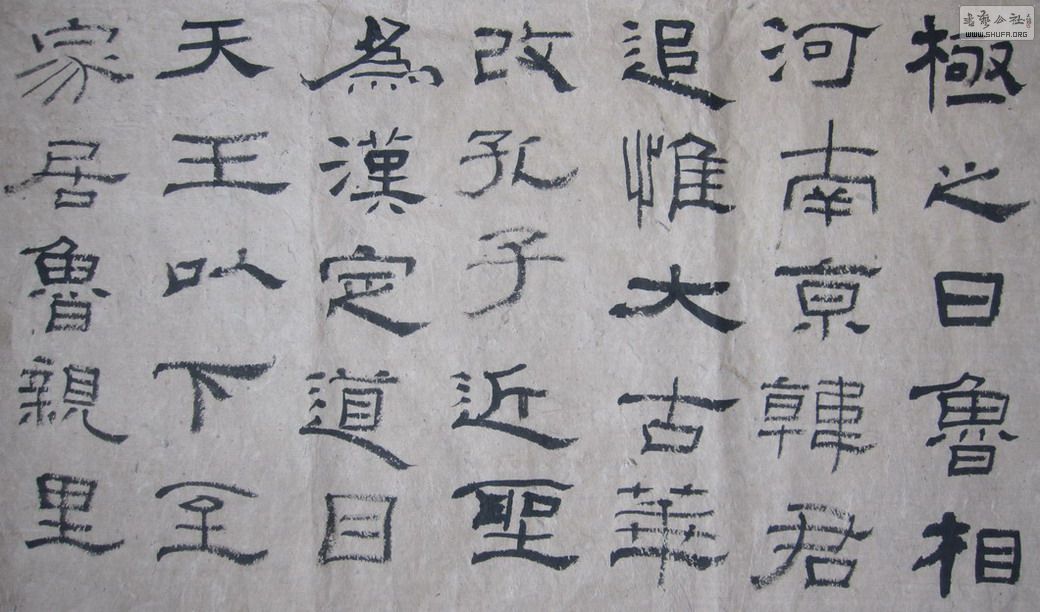 極之日魯相
河南京韓君
追惟大古華
改孔子近聖
為漢定道目
天王以下至
家居魯親里
書藝公社
WWW.SHUFA.ORG